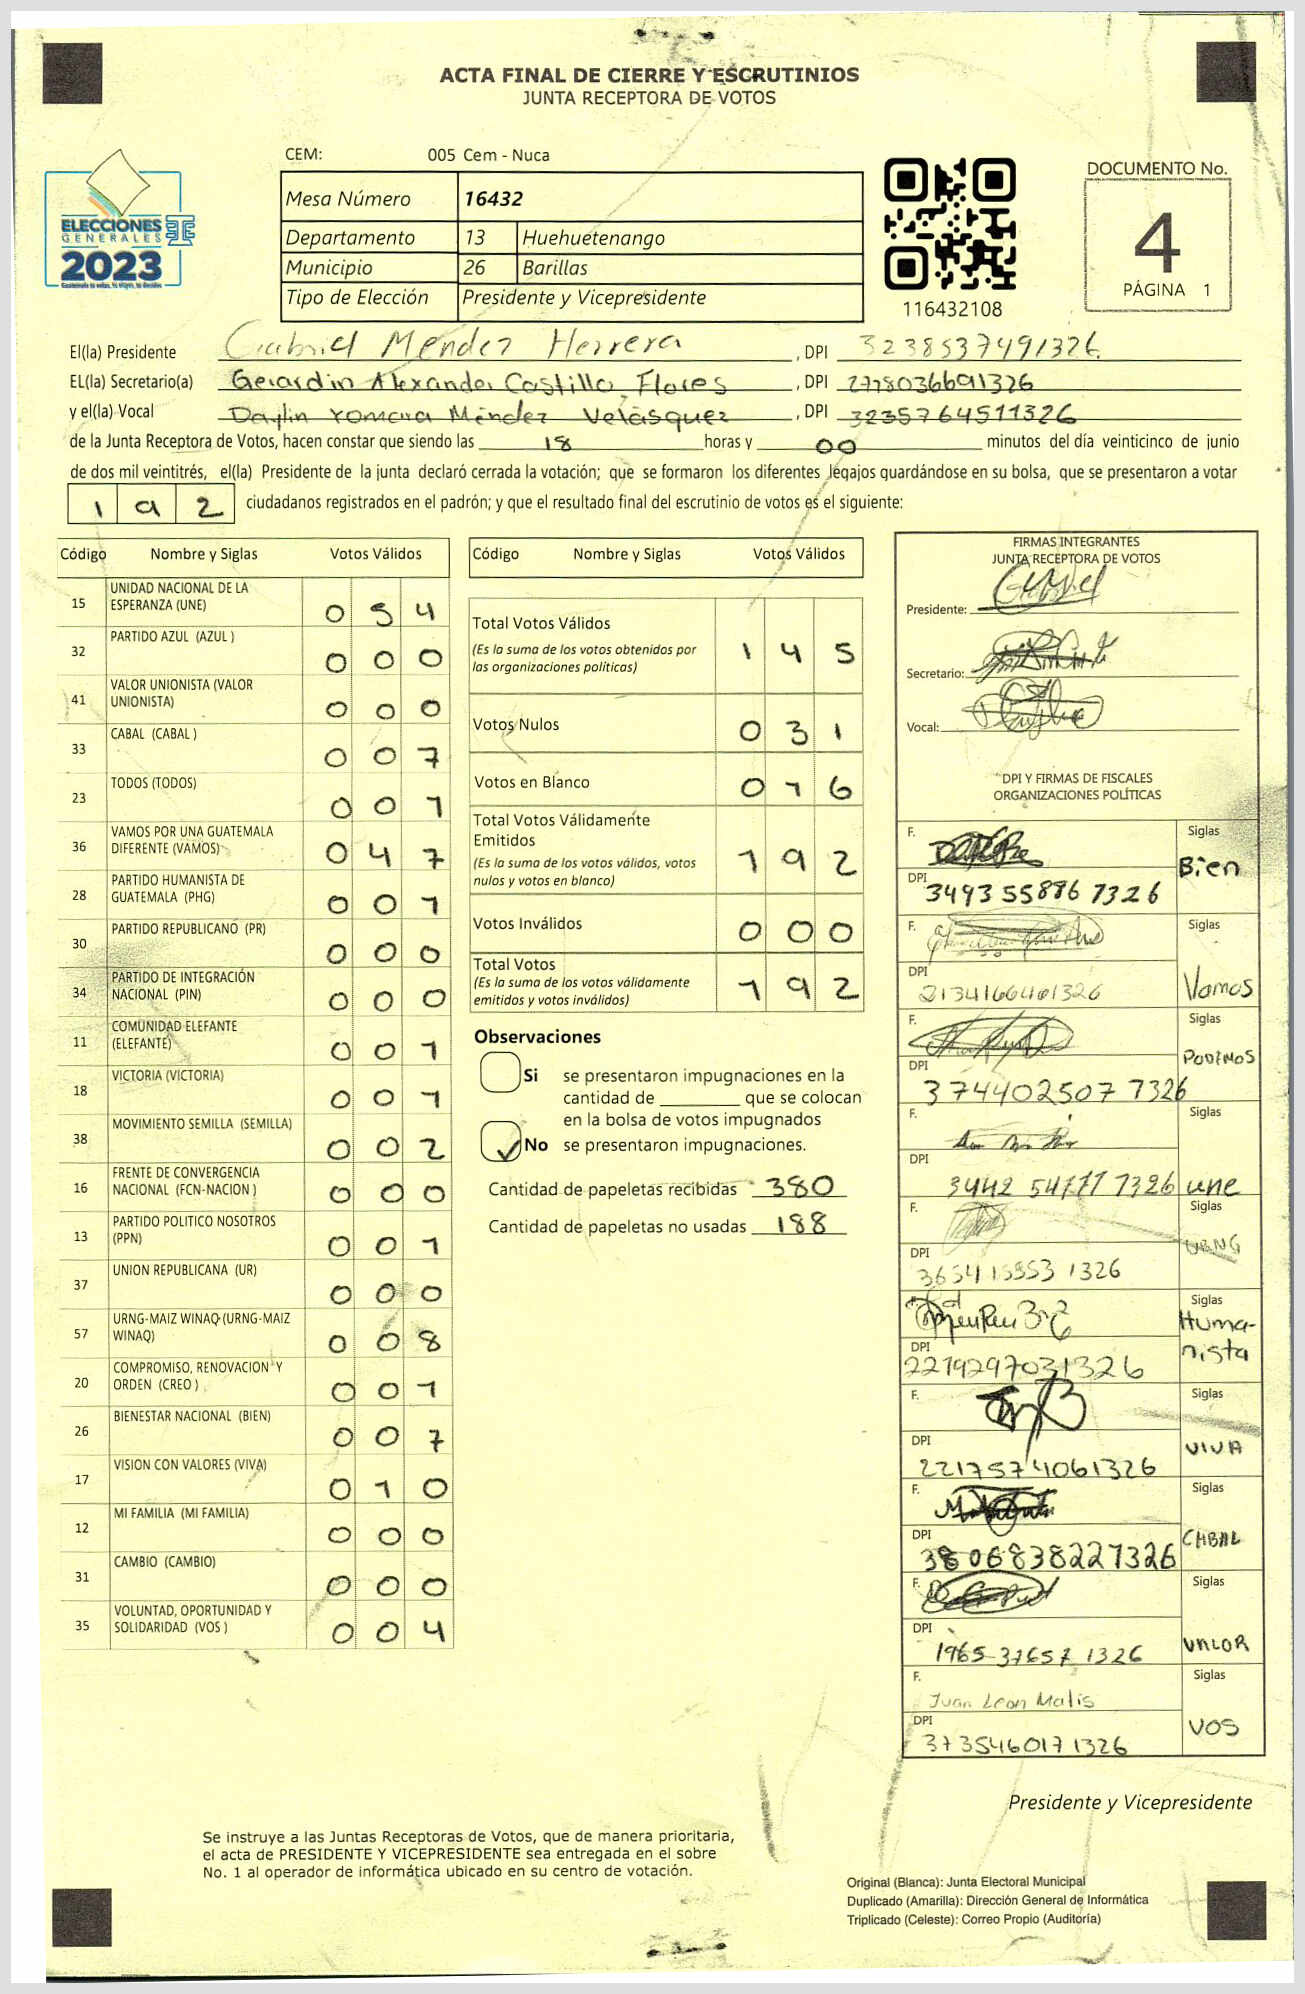 ACTA FINAL DE CIERRE Y ESCRUTINIOS
JUNTA RECEPTORA DE VOTOS
CEM: 005 Cem - Nuca
Mesa Número 16432
Departamento 13 Huehuetenango
Municipio 26 Barillas
Tipo de Elección Presidente y Vicepresidente
ELECCIONES
GENERALES
2023
116432108
DOCUMENTO No.
4
PÁGINA 1
El(la) Presidente Gabriel Méndez Herrera , DPI 3238537491326
EL(la) Secretario(a) Gerardin Alexander Castillo Flores , DPI 2778036691326
y el(la) Vocal Daylin Yomara Méndez Velásquez , DPI 3235764511326
de la Junta Receptora de Votos, hacen constar que siendo las 18 horas y 00 minutos del día veinticinco de junio
de dos mil veintitrés, el(la) Presidente de la junta declaró cerrada la votación; que se formaron los diferentes legajos guardándose en su bolsa, que se presentaron a votar
192 ciudadanos registrados en el padrón; y que el resultado final del escrutinio de votos es el siguiente:
Código Nombre y Siglas Votos Válidos
15 UNIDAD NACIONAL DE LA ESPERANZA (UNE) 054
32 PARTIDO AZUL (AZUL ) 000
41 VALOR UNIONISTA (VALOR UNIONISTA) 000
33 CABAL (CABAL ) 007
23 TODOS (TODOS) 001
36 VAMOS POR UNA GUATEMALA DIFERENTE (VAMOS) 047
28 PARTIDO HUMANISTA DE GUATEMALA (PHG) 001
30 PARTIDO REPUBLICANO (PR) 000
34 PARTIDO DE INTEGRACIÓN NACIONAL (PIN) 000
11 COMUNIDAD ELEFANTE (ELEFANTE) 001
18 VICTORIA (VICTORIA) 001
38 MOVIMIENTO SEMILLA (SEMILLA) 002
16 FRENTE DE CONVERGENCIA NACIONAL (FCN-NACION ) 000
13 PARTIDO POLITICO NOSOTROS (PPN) 001
37 UNION REPUBLICANA (UR) 000
57 URNG-MAIZ WINAQ (URNG-MAIZ WINAQ) 008
20 COMPROMISO, RENOVACION Y ORDEN (CREO ) 001
26 BIENESTAR NACIONAL (BIEN) 007
17 VISION CON VALORES (VIVA) 010
12 MI FAMILIA (MI FAMILIA) 000
31 CAMBIO (CAMBIO) 000
35 VOLUNTAD, OPORTUNIDAD Y SOLIDARIDAD (VOS ) 004
Código Nombre y Siglas Votos Válidos
Total Votos Válidos 145
(Es la suma de los votos obtenidos por
las organizaciones políticas)
Votos Nulos 031
Votos en Blanco 016
Total Votos Válidamente
Emitidos 192
(Es la suma de los votos válidos, votos
nulos y votos en blanco)
Votos Inválidos 000
Total Votos 192
(Es la suma de los votos válidamente
emitidos y votos inválidos)
Observaciones
Si se presentaron impugnaciones en la
cantidad de ________ que se colocan
en la bolsa de votos impugnados
No se presentaron impugnaciones.
Cantidad de papeletas recibidas 380
Cantidad de papeletas no usadas 188
FIRMAS INTEGRANTES
JUNTA RECEPTORA DE VOTOS
Presidente:
Secretario:
Vocal:
DPI Y FIRMAS DE FISCALES
ORGANIZACIONES POLÍTICAS
F. Siglas
Bien
DPI 3493558867326
F. Siglas
DPI 2134166461326 Vamos
F. Siglas
PODEMOS
DPI 3744025077326
F. Siglas
DPI une
F. Siglas
URNG
DPI
F. Siglas
Humanista
DPI 2219297031326
F. Siglas
VIVA
DPI 2217574061326
F. Siglas
CABAL
DPI 3806838227326
F. Siglas
DPI 1965 37657 1326 VALOR
F. Juan Leon Matis Siglas
DPI 3735460171326 VOS
Presidente y Vicepresidente
Se instruye a las Juntas Receptoras de Votos, que de manera prioritaria,
el acta de PRESIDENTE Y VICEPRESIDENTE sea entregada en el sobre
No. 1 al operador de informática ubicado en su centro de votación.
Original (Blanca): Junta Electoral Municipal
Duplicado (Amarilla): Dirección General de Informática
Triplicado (Celeste): Correo Propio (Auditoría)